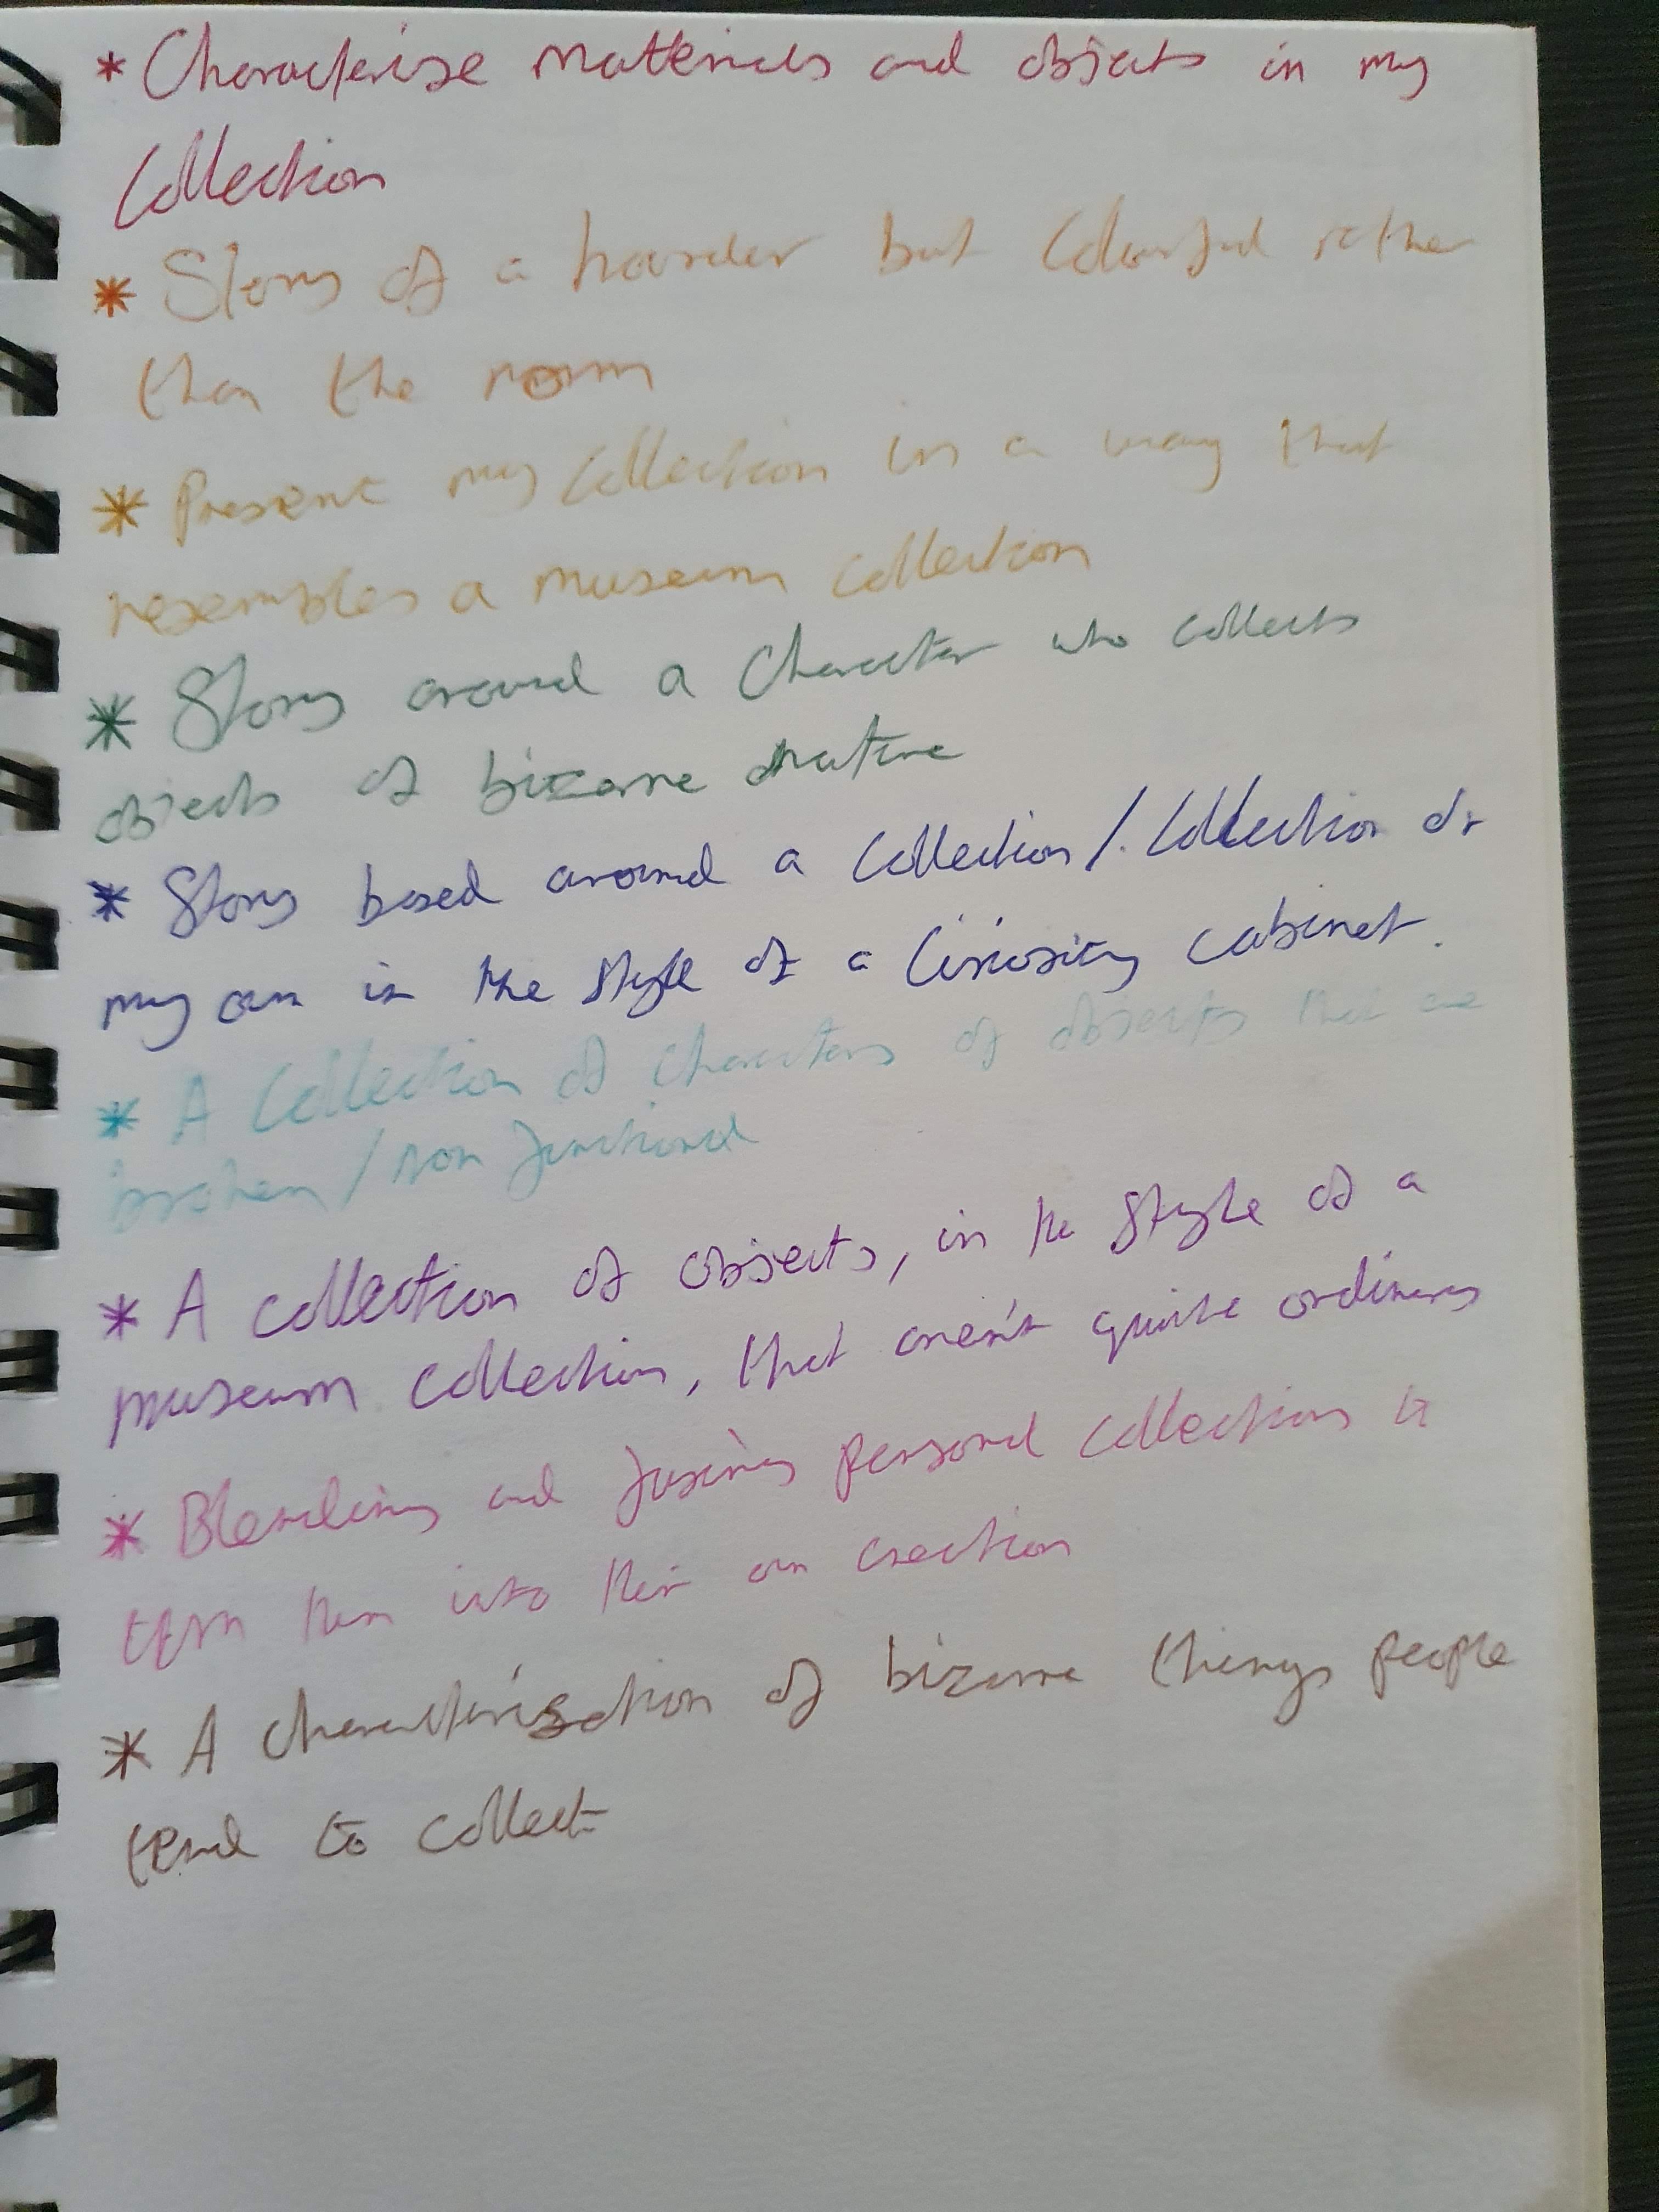 * Characterise materials and objects in my
collection
* Story of a hoarder but colourful rather
than the norm
* Present my collection in a way that
resembles a museum collection
* Story around a character who collects
objects of bizarre nature
* Story based around a collection/. Collection of
my own in the style of a Curiosity cabinet.
* A collection of characters of objects that are
broken/non functional
* A collection of objects, in the style of a
museum collection, that aren't quite ordinary
* Blending and fusing personal collections to
turn them into their own creation
* A characterisation of bizarre things people
tend to collect